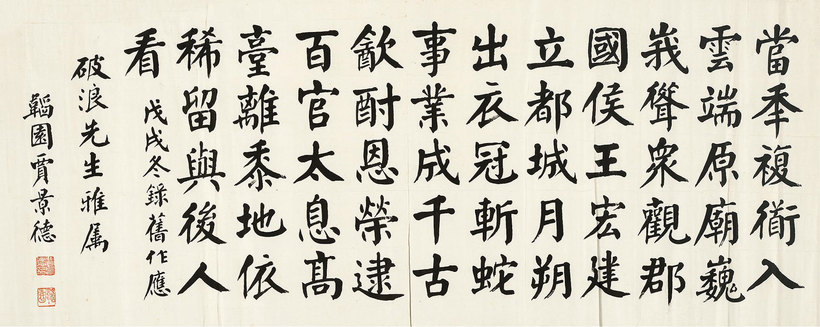 當年複衜入
雲端原廟巍
峩聳衆觀郡
國侯王宏建
立都城月朔
出衣冠斬蛇
事業成千古
歃酎恩榮逮
百官太息髙
臺離黍地依
稀留與後人
看
戊戌冬錄舊作應
破浪先生雅属
韜園賈景德